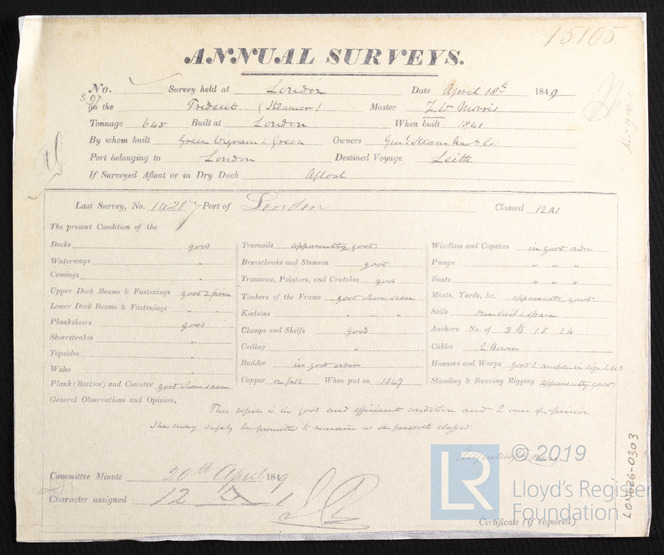 15105
ANNUAL SURVEYS.
No. Survey held at London Date April 18th 1849
on the Trident (Steamer) Master Morris
Tonnage 645 Built at London When built 1841
By whom built Green Wigrams & Green Owners Genl Steam Nav Co.
Port belonging to London Destined Voyage Leith
If Surveyed Afloat or in Dry Dock Afloat
Last Survey, No. 14207 Port of London Classed 12A1
The present Condition of the
Decks good
Waterways "
Comings "
Upper Deck Beams & Fastenings good
Lower Deck Beams & Fastenings "
Planksheers good
Sheerstrakes "
Topsides "
Wales "
Plank (Bottom) and Counter good where seen
Treenails apparently good
Breasthooks and Stemson good
Transoms, Pointers, and Crutches good
Timbers of the Frame good where seen
Keelsons " " "
Clamps and Shelfs good
Ceiling "
Rudder in good order
Copper on felt When put on 1847
Windlass and Capstan in good order
Pumps " " "
Boats " " "
Masts, Yards, &c. apparently good
Sails
Anchors No. of 3B 1S 2K
Cables 2 Bower
Hawsers and Warps good &
Standing & Running Rigging apparently good
General Observations and Opinion,
This vessel is in good and efficient condition and
She may safely be permitted to remain as at present classed.
Committee Minute 20th April 1849
Character assigned 12 A 1
Certificate (if required)
LON626-0303
LR © 2019
Lloyd's Register
Foundation